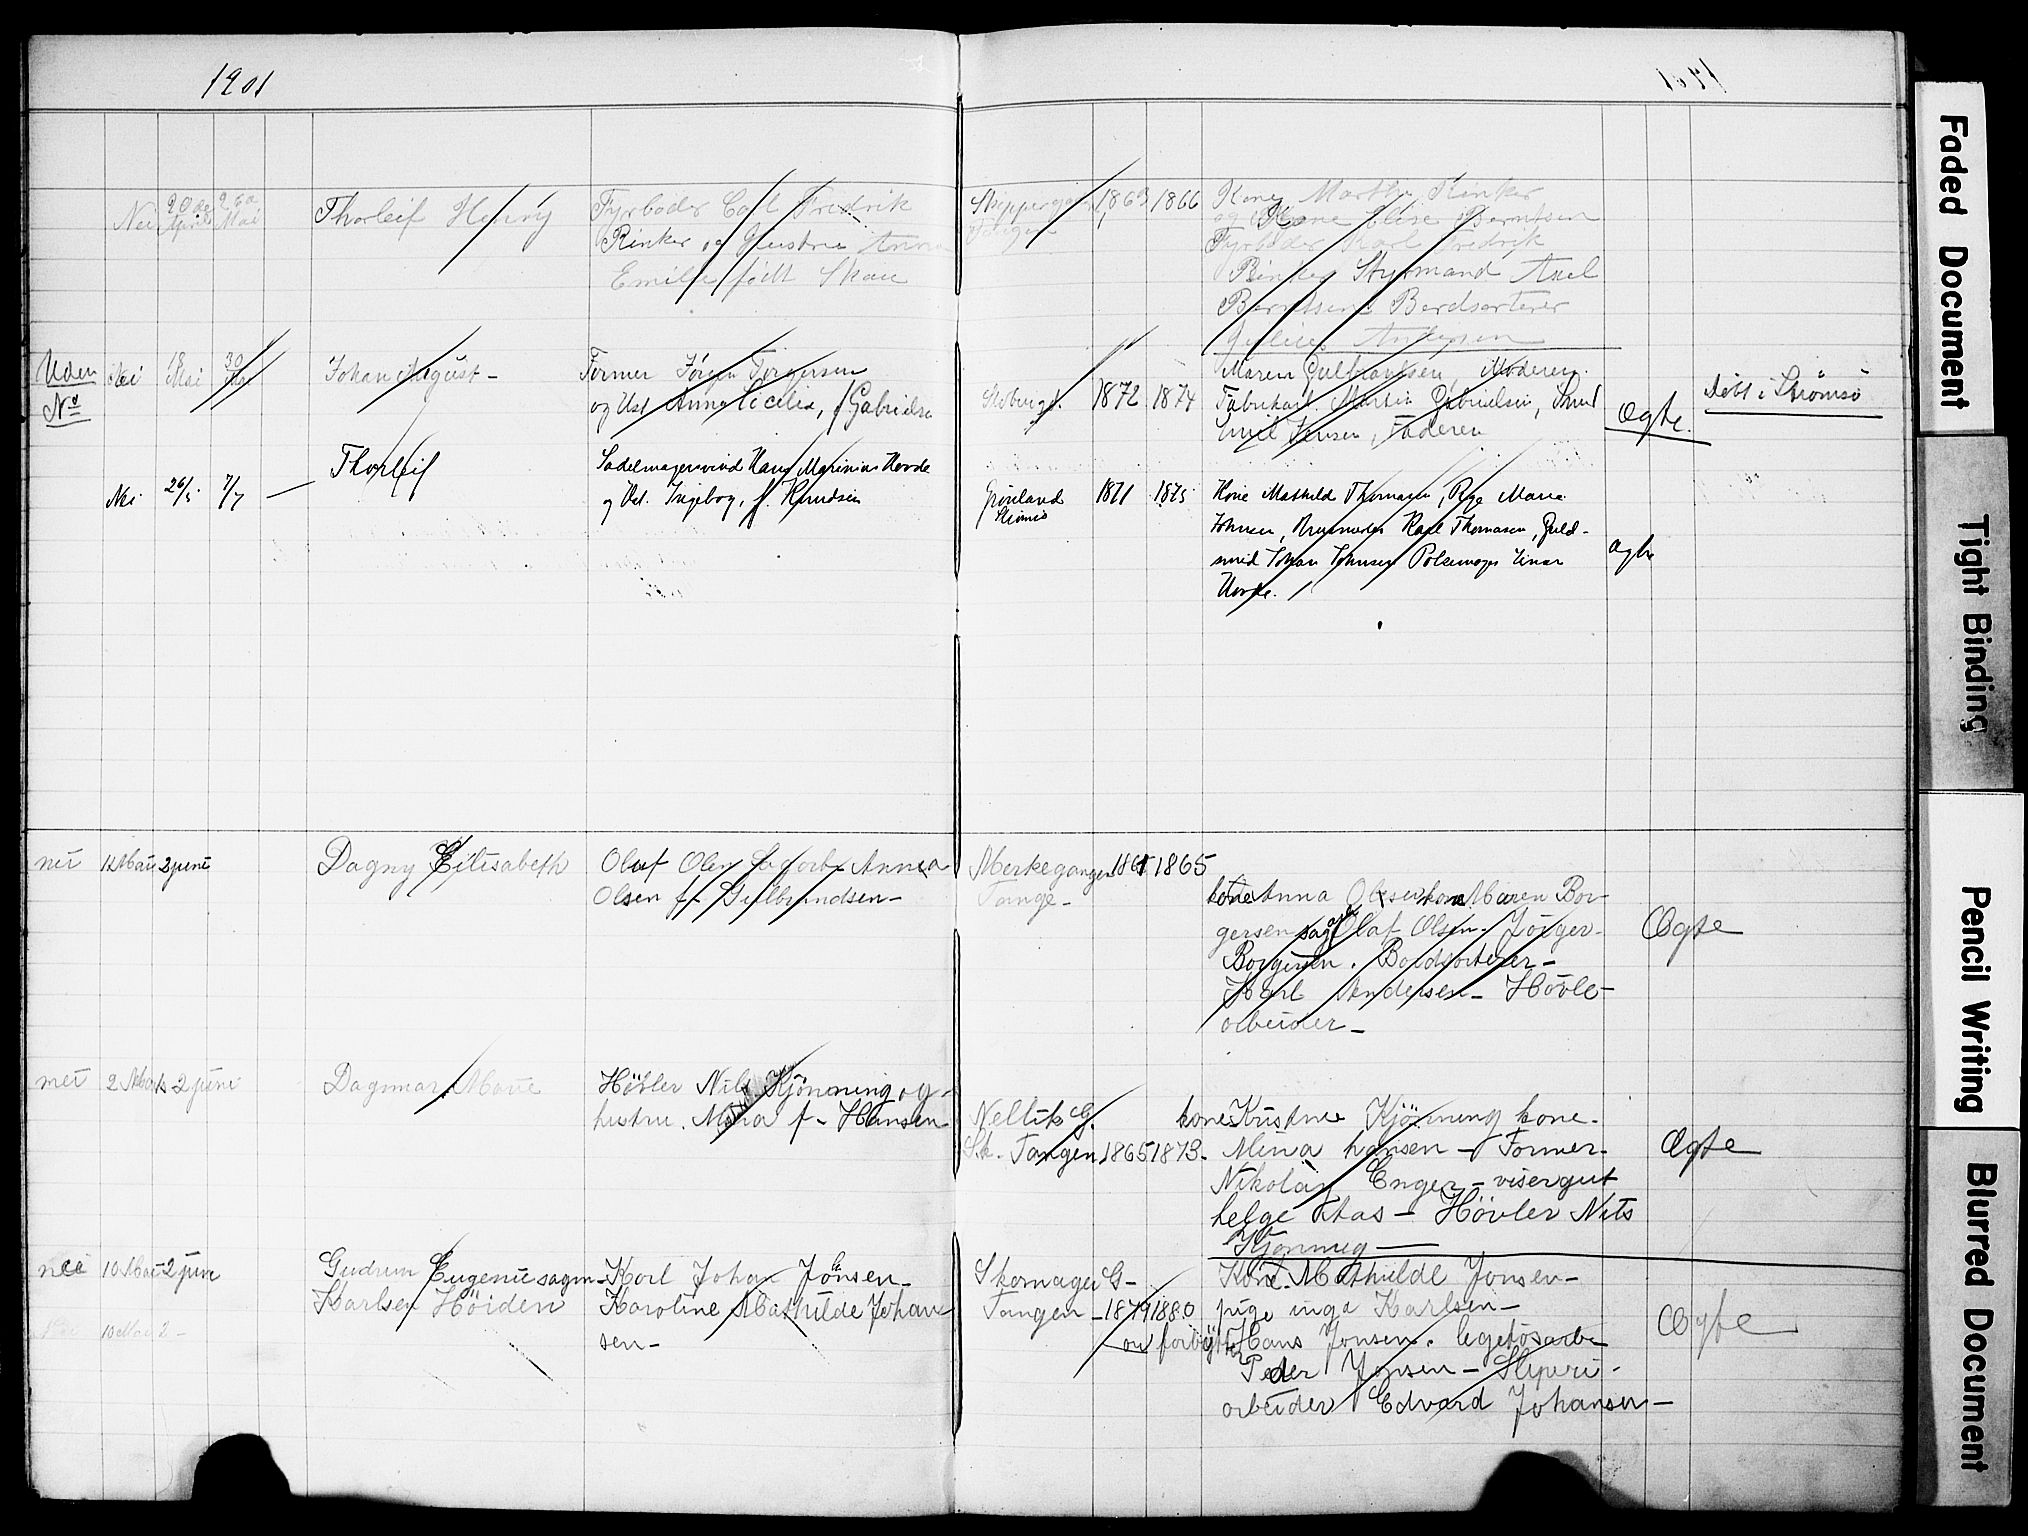 1901
1901
Nei
20de April
26a Mai
Thorleif Henry
Fyrbøder Carl Fredrik
Rinker og Hustru Anna
Emilie født Skau
Skippergaden
Tangen
1863
1866
Kone Marthe Rinker
og Kone Elise Berntsen
Fyrbøder Karl Fredrik
Rinker Styrmand Axel
Berntsen Bordsorterer
Julius Andersen
Uden
No
Nei
18 Mai
30 Mai
Johan August -
Former Jørgen Torgersen
og Ust. Anna Cecilia, f. Gabrielse
1872
1874
Maren Gulbrandsen, Moderen.
Fabrikarb. Martin Gabrielsen, Smed
Emil Jensen, Faderen
Ægte.
Døbt i Strømsø
Nei
26/5
7/7
Thorleif
Sadelmagersvend Hans Marinius Hovde
og Ust. Ingeborg, f. Knudsen
Grønland
Strømsø
1871
1875
Kone Mathild Thomasen, Pige Marie
Johnsen, Karl Thomasen, Guld-
smid Johan Johnsen Pølsemager Einar
Hovde.
ægte
nei
12 Mai
2 juni
Dagny Elisabeth
Oluf Olsen Anna
Olsen f- Gulbrandsen -
Merkegangen
Tange -
1861
1865
kone Anna Olsen kone Maren Bor-
gersen Olaf Olsen - Jörger
Borgersen. Bordsorterer -
Karl Andersen - Hövle-
arbeider -
Ægte
nei
2 Marts
2 juni
Dagmar Marie
Hövler Nils Kjönning og
hustru. Maria f- Hansen -
Nellik G.
Sk. Tangen
1865
1873 -
kone Kristine Kjörning kone -
Mina hansen - Former -
Nikolai Enger - visergut
helge Aas - Hövler Nils
Kjönnig -
Ægte
nei
10 Mai
2 juni
Gudrun Eugenie sagm
Karlsen Höiden
Karl Johan Jönsen -
Karoline Mathilde Johan
sen -
Skomager G -
Tangen -
1879
1880
Kone. Mathilde Jonsen -
pige inga Karlsen -
Hans Jonsen. legetösarbe
Peder Jonsen - Sliperi -
arbeider Edvard Johansen -
Ægte
Nei 10 Mai 2 -
Faded Document
Tight Binding
Pencil Writing
Blurred Document